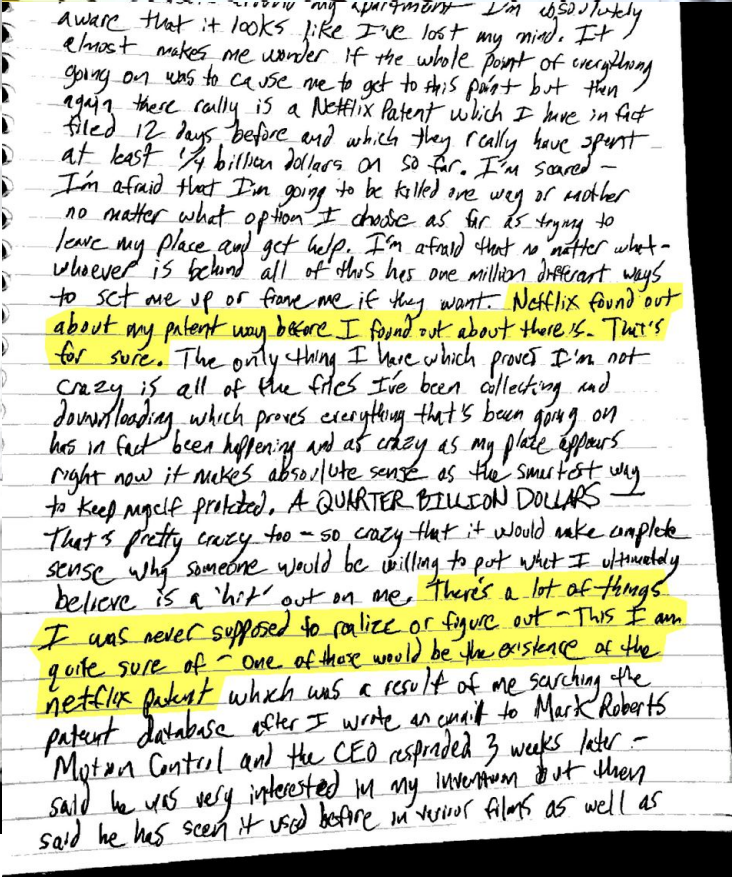 my apartment - I'm absolutely
aware that it looks like I've lost my mind. It
almost makes me wonder if the whole point of everything
going on was to cause me to get to this point but then
again there really is a Netflix Patent which I have in fact
filed 12 days before and which they really have spent
at least 1/4 billion dollars on so far. I'm scared -
I'm afraid that I'm going to be killed one way or another
no matter what option I choose as far as trying to
leave my place and get help. I'm afraid that no matter what -
whoever is behind all of this has one million different ways
to set me up or frame me if they want. Netflix found out
about my patent way before I found out about theirs. That's
for sure. The only thing I have which proves I'm not
crazy is all of the files I've been collecting and
downloading which proves everything that's been going on
has in fact been happening and as crazy as my place appears
right now it makes absolute sense as the smartest way
to keep myself protected. A QUARTER BILLION DOLLARS -
That's pretty crazy too - so crazy that it would make complete
sense why someone would be willing to put what I ultimately
believe is a 'hit' out on me. There's a lot of things
I was never supposed to realize or figure out - This I am
quite sure of - One of those would be the existence of the
netflix patent which was a result of me searching the
patent database after I wrote an email to Mark Roberts
Motion Control and the CEO responded 3 weeks later -
said he was very interested in my invention but then
said he has seen it used before in various films as well as